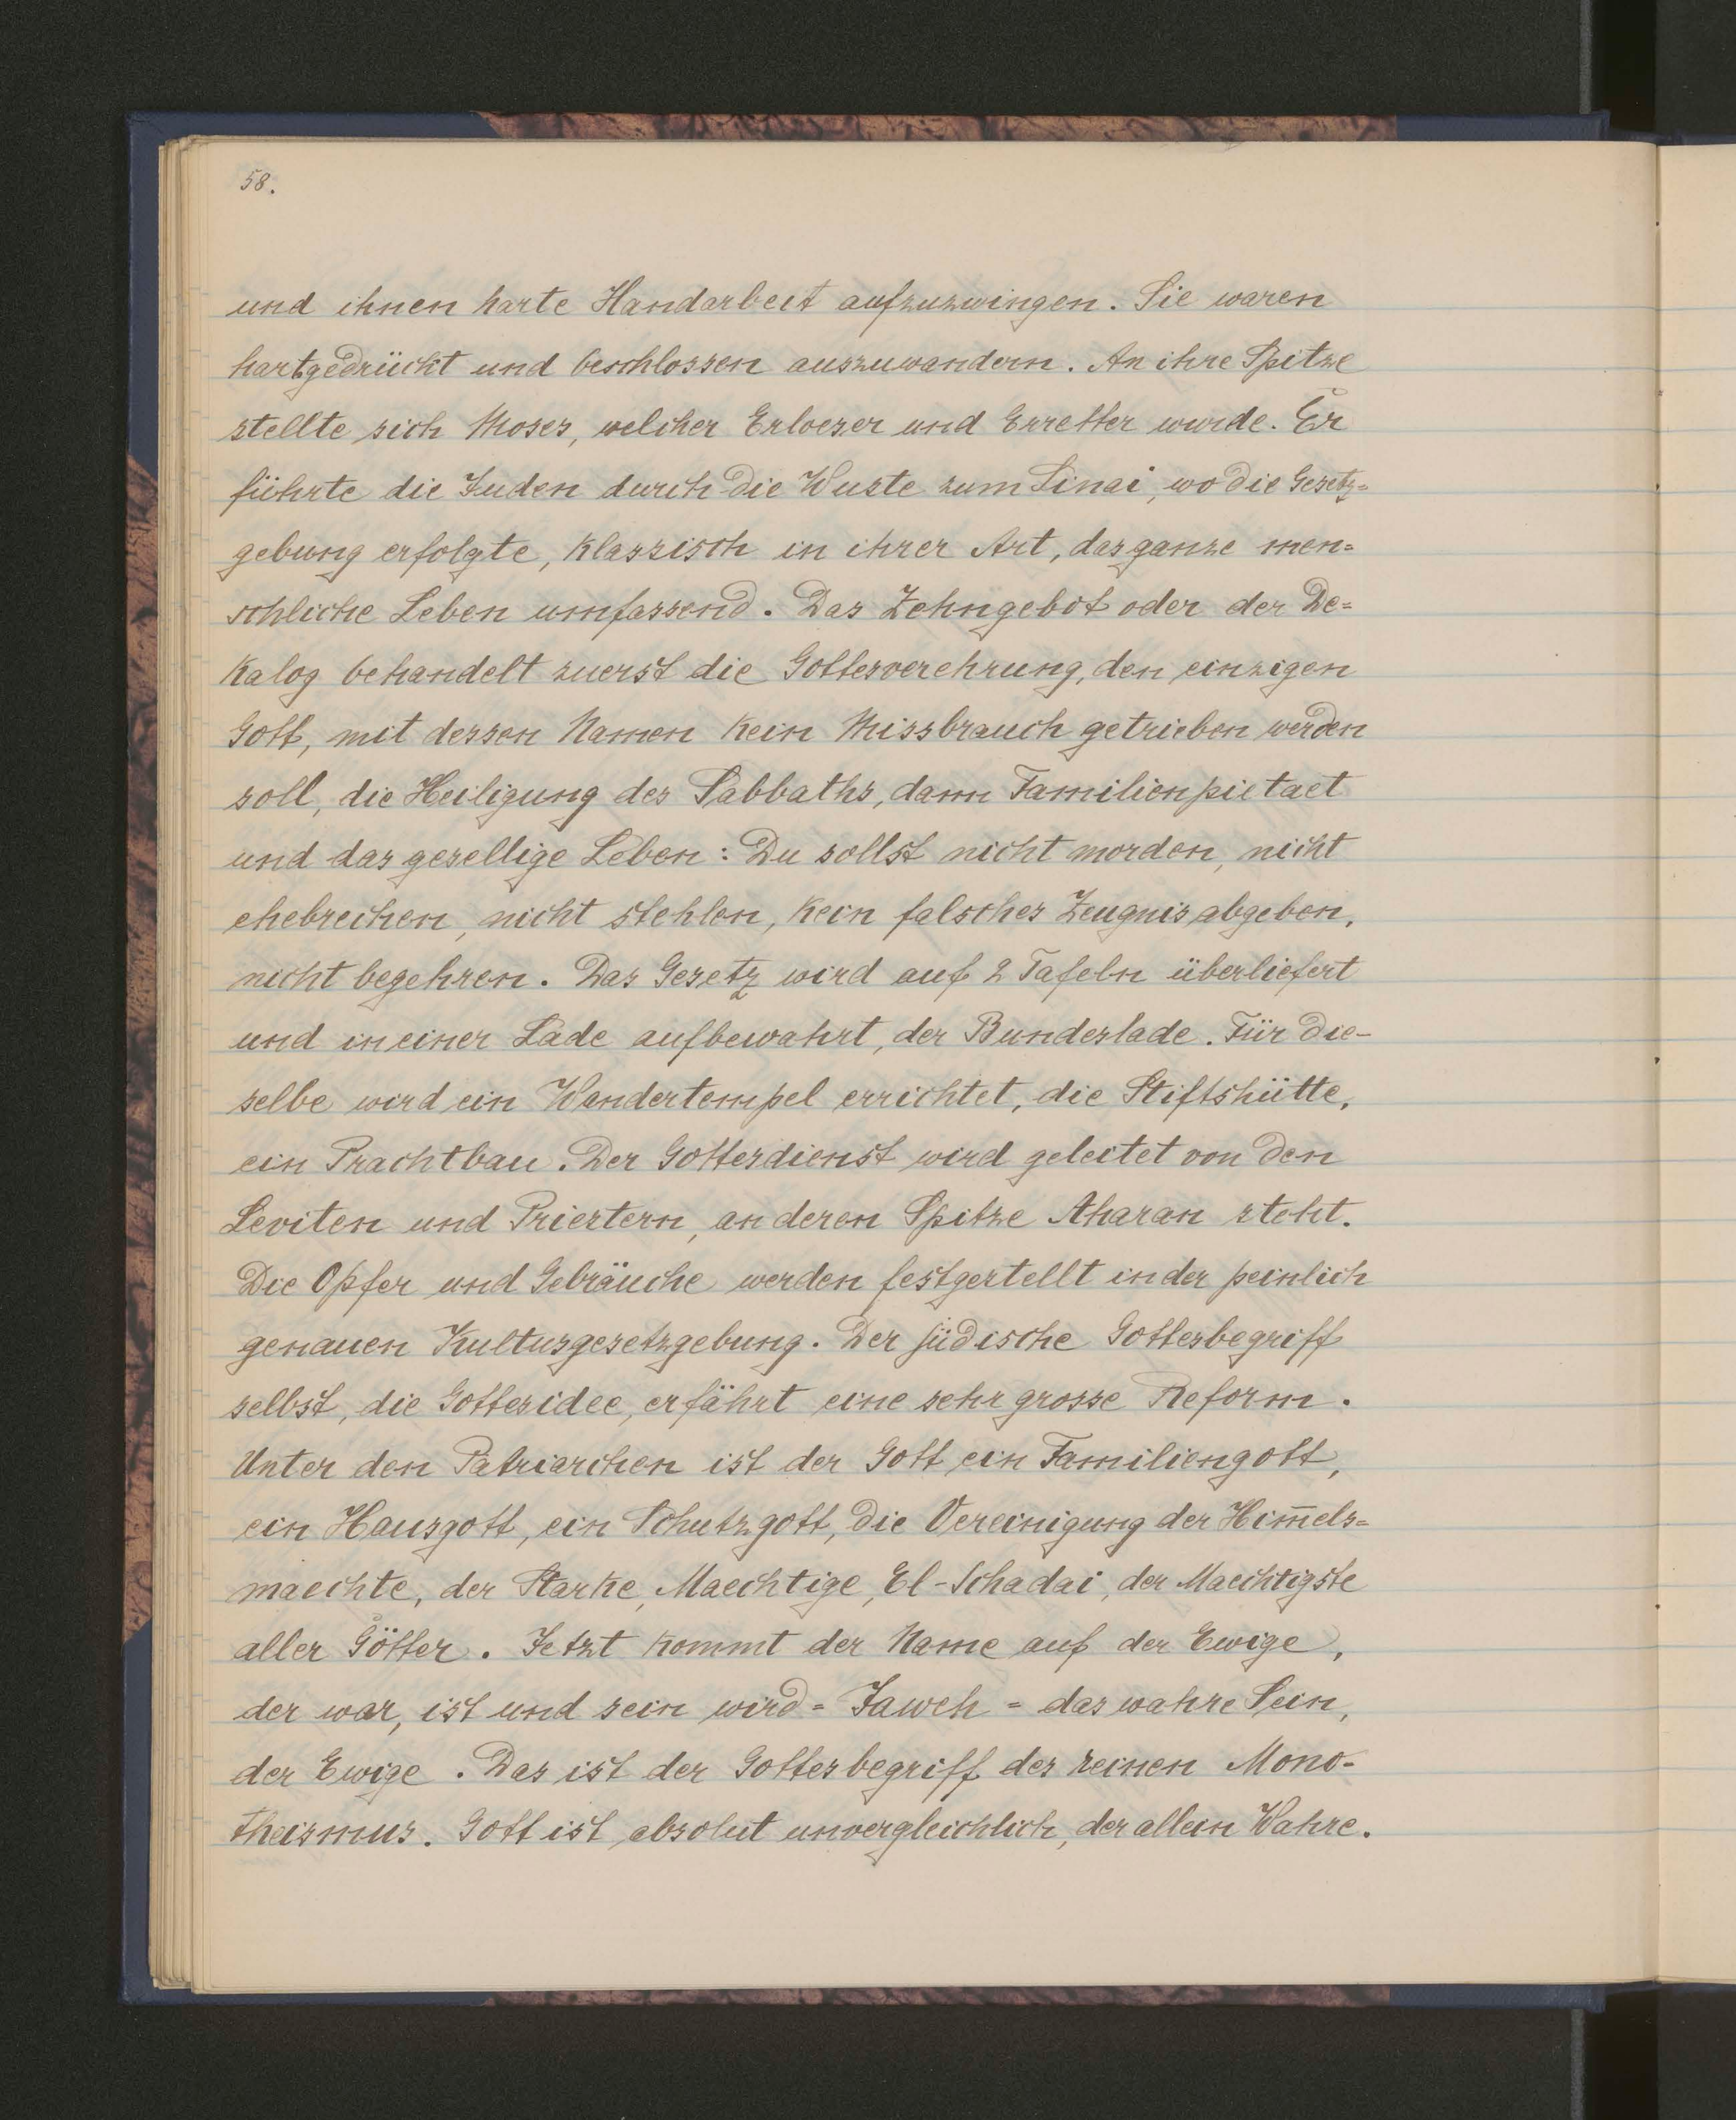 58.
und ihnen harte Handarbeit aufzuzwingen. Sie waren
hartgedrückt und beschlossen auszuwandern. An ihre Spitze
stellte sich Moses, welcher Erloeser und Erretter wurde. Er
führte die Juden durch die Wuste zum Sinai, wo die Gesetz=
gebung erfolgte, klassisch in ihrer Art, das ganze men=
schliche Leben umfassend. Das Zehngebot oder der De=
kalog behandelt zuerst die Gottesverehrung, den einzigen
Gott, mit dessen Namen kein Missbrauch getrieben werden
soll, die Heiligung des Sabbaths, dann Familienpietaet
und das gesellige Leben: Du sollst nicht morden, nicht
ehebrechen, nicht stehlen, kein falsches Zeugnis abgeben,
nicht begehren. Das Gesetz wird auf 2 Tafeln überliefert
und in einer Lade aufbewahrt, der Bundeslade. Für die-
selbe wird ein Wandertempel errichtet, die Stiftshütte,
ein Prachtbau. Der Gottesdienst wird geleitet von den
Leviten und Priestern, an deren Spitze Aharan steht.
Die Opfer und Gebräuche werden festgestellt in der peinlich
genauen Kultusgesetzgebung. Der jüdische Gottesbegriff
selbst, die Gottesidee, erfährt eine sehr grosse Reform.
Unter den Patriarchen ist der Gott ein Familiengott,
ein Hausgott, ein Schutzgott, die Vereinigung der Him̅els=
maechte, der Starke, Maechtige, El-Schadai, der Maechtigste
aller Götter. Jetzt kommt der Name auf der Ewige,
der war, ist und sein wird = Jaweh = das wahre Sein,
der Ewige. Das ist der Gottesbegriff des reinen Mono-
theismus. Gott ist absolut unvergleichlich, der allein Wahre.